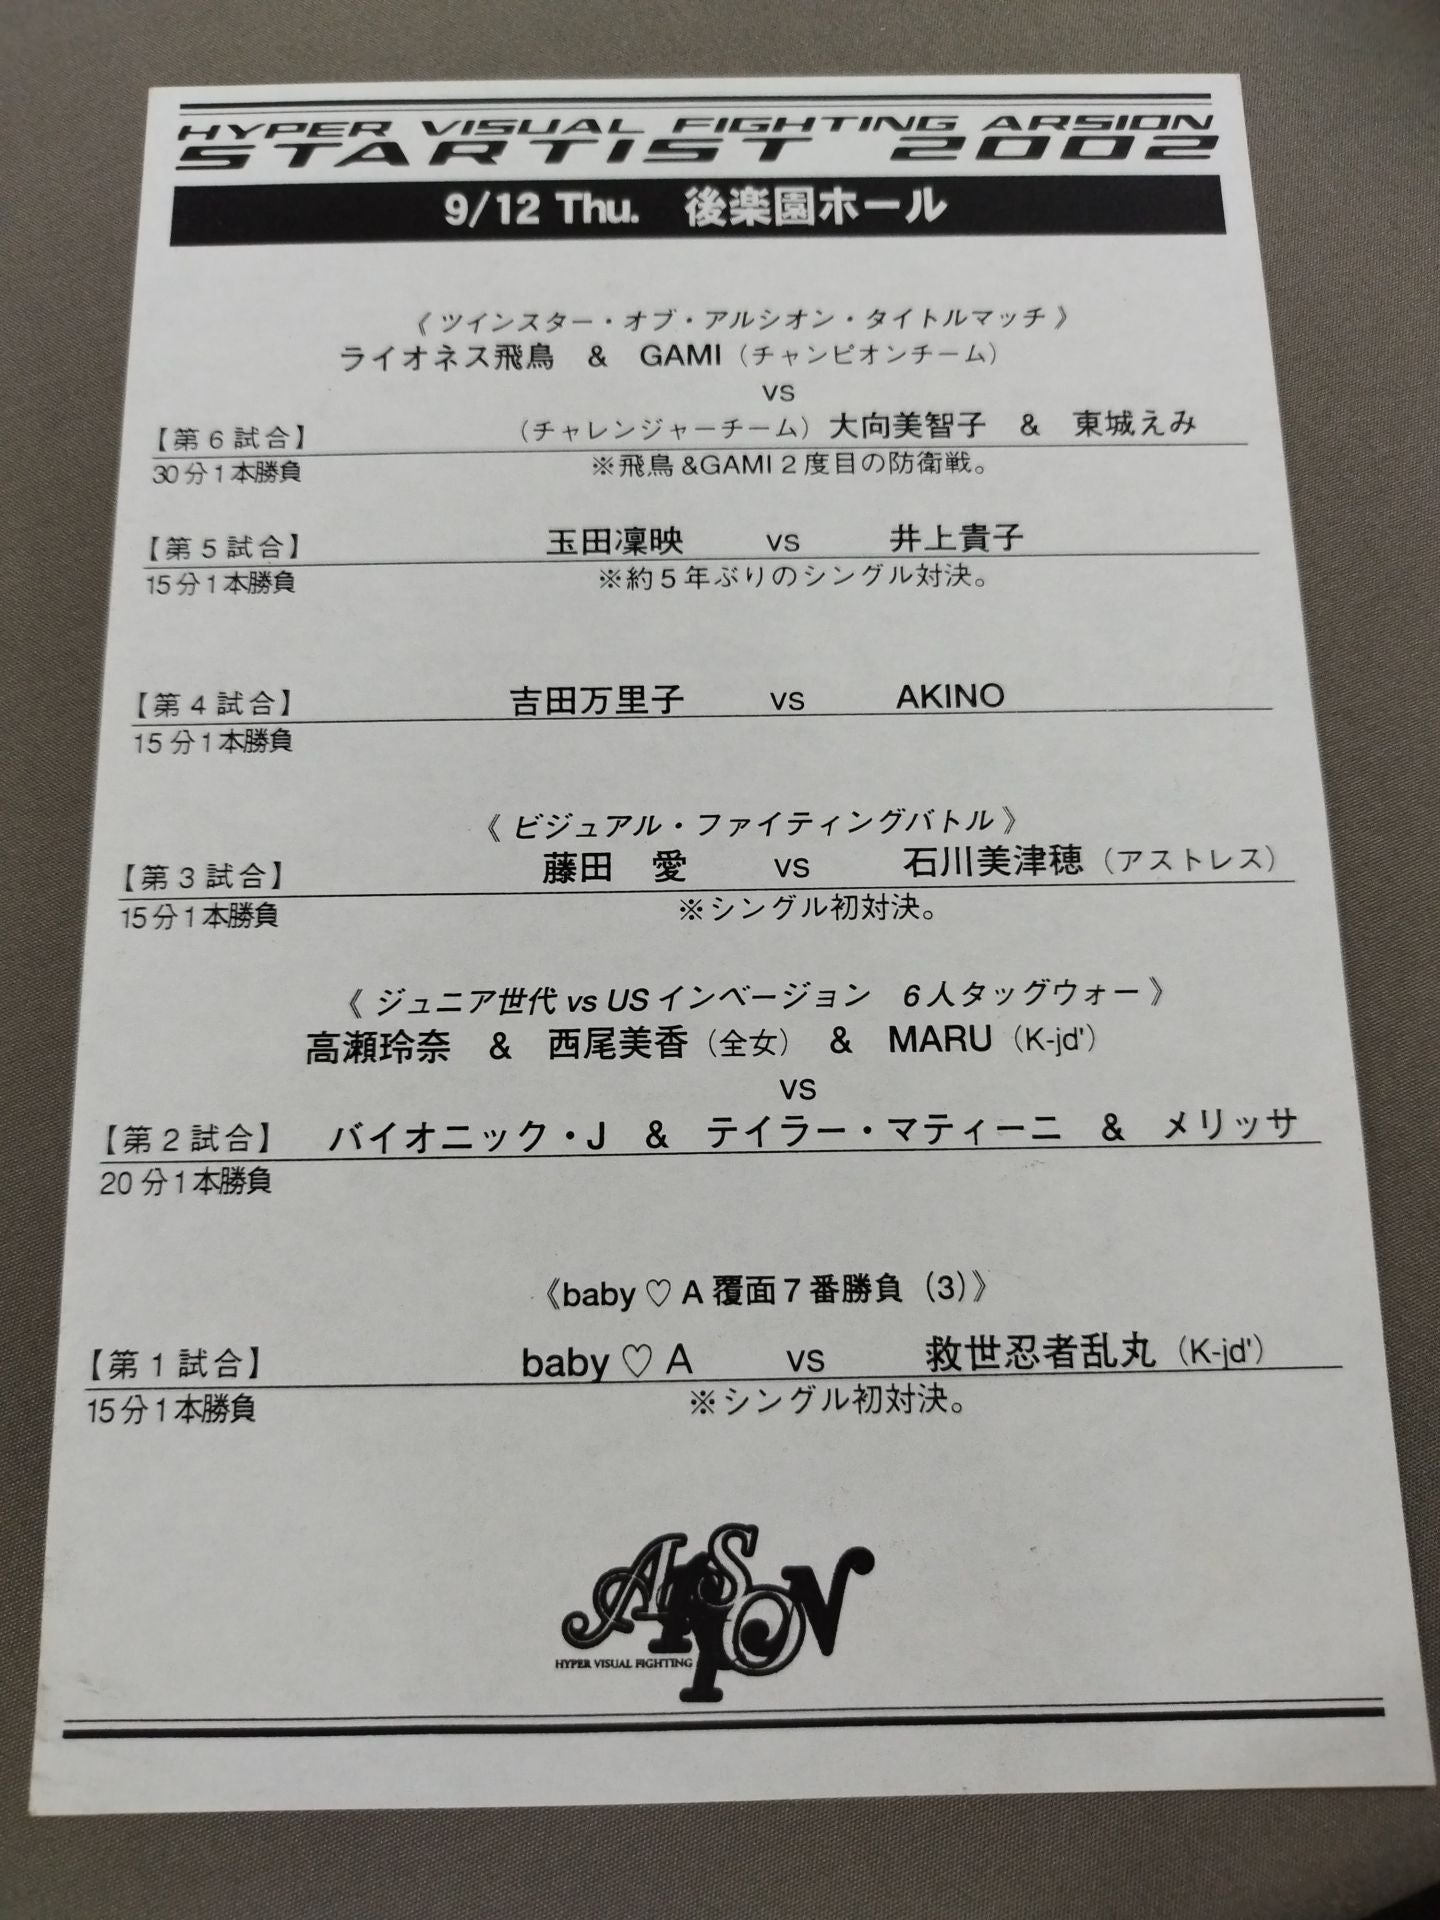 HYPER VISUAL FIGHTING ARSION
STARTIST 2002
9/12 Thu. 後楽園ホール
《 ツインスター・オブ・アルシオン・タイトルマッチ 》
ライオネス飛鳥 & GAMI（チャンピオンチーム）
vs
【第６試合】 （チャレンジャーチーム）大向美智子 & 東城えみ
30分１本勝負 ※飛鳥&GAMI２度目の防衛戦。
【第５試合】 玉田凜映 vs 井上貴子
15分１本勝負 ※約５年ぶりのシングル対決。
【第４試合】 吉田万里子 vs AKINO
15分１本勝負
《 ビジュアル・ファイティングバトル 》
【第３試合】 藤田 愛 vs 石川美津穂（アストレス）
15分１本勝負 ※シングル初対決。
《 ジュニア世代 vs US インベージョン 6人タッグウォー 》
高瀬玲奈 & 西尾美香（全女） & MARU（K-jd'）
vs
【第２試合】 バイオニック・J & テイラー・マティーニ & メリッサ
20分１本勝負
《baby♡A覆面７番勝負（3）》
【第１試合】 baby♡A vs 救世忍者乱丸（K-jd'）
15分１本勝負 ※シングル初対決。
ARSION
HYPER VISUAL FIGHTING